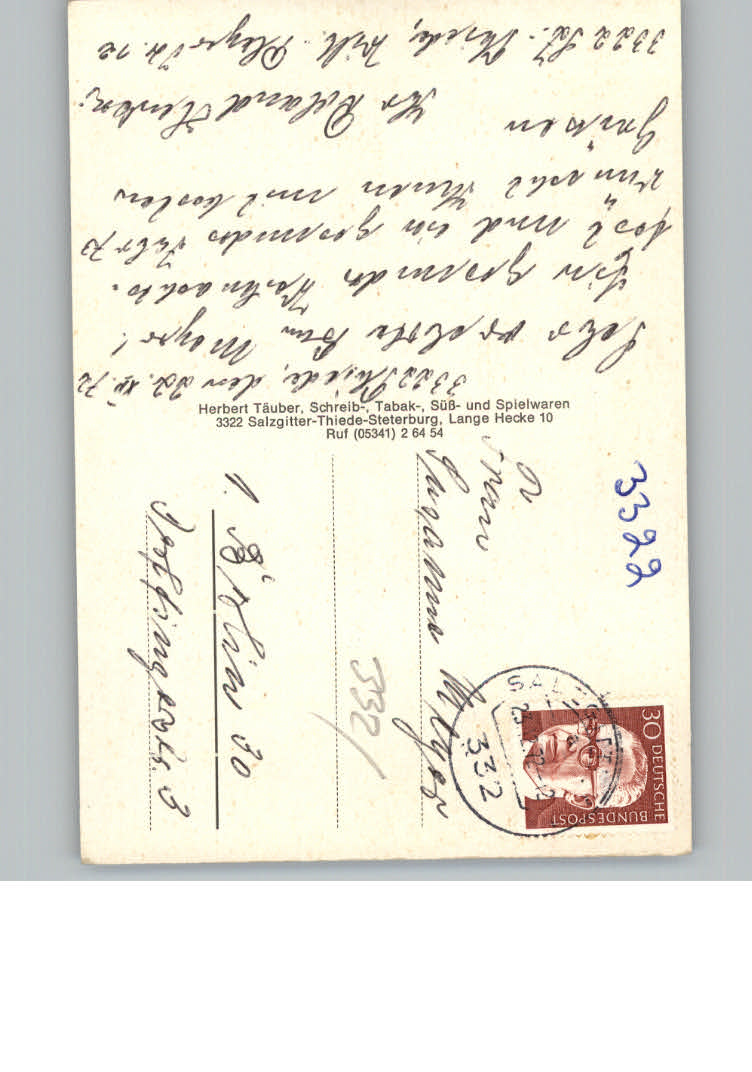 3322 Thiede, den 22. XII. 72
Sehr verehrte Frau Meyer!
Ein gesundes Weihnachts-
fest und ein gesundes Jahr 73
wünscht Ihnen mit besten
Grüssen
Ihr Roland
3322 SZ.- Thiede, Wilh.
Herbert Täuber, Schreib-, Tabak-, Süß- und Spielwaren
3322 Salzgitter-Thiede-Steterburg, Lange Hecke 10
Ruf (05341) 2 64 54
Frau
Susanne Meyer
1. Berlin 30
3
3322
332
332
30 DEUTSCHE
BUNDESPOST